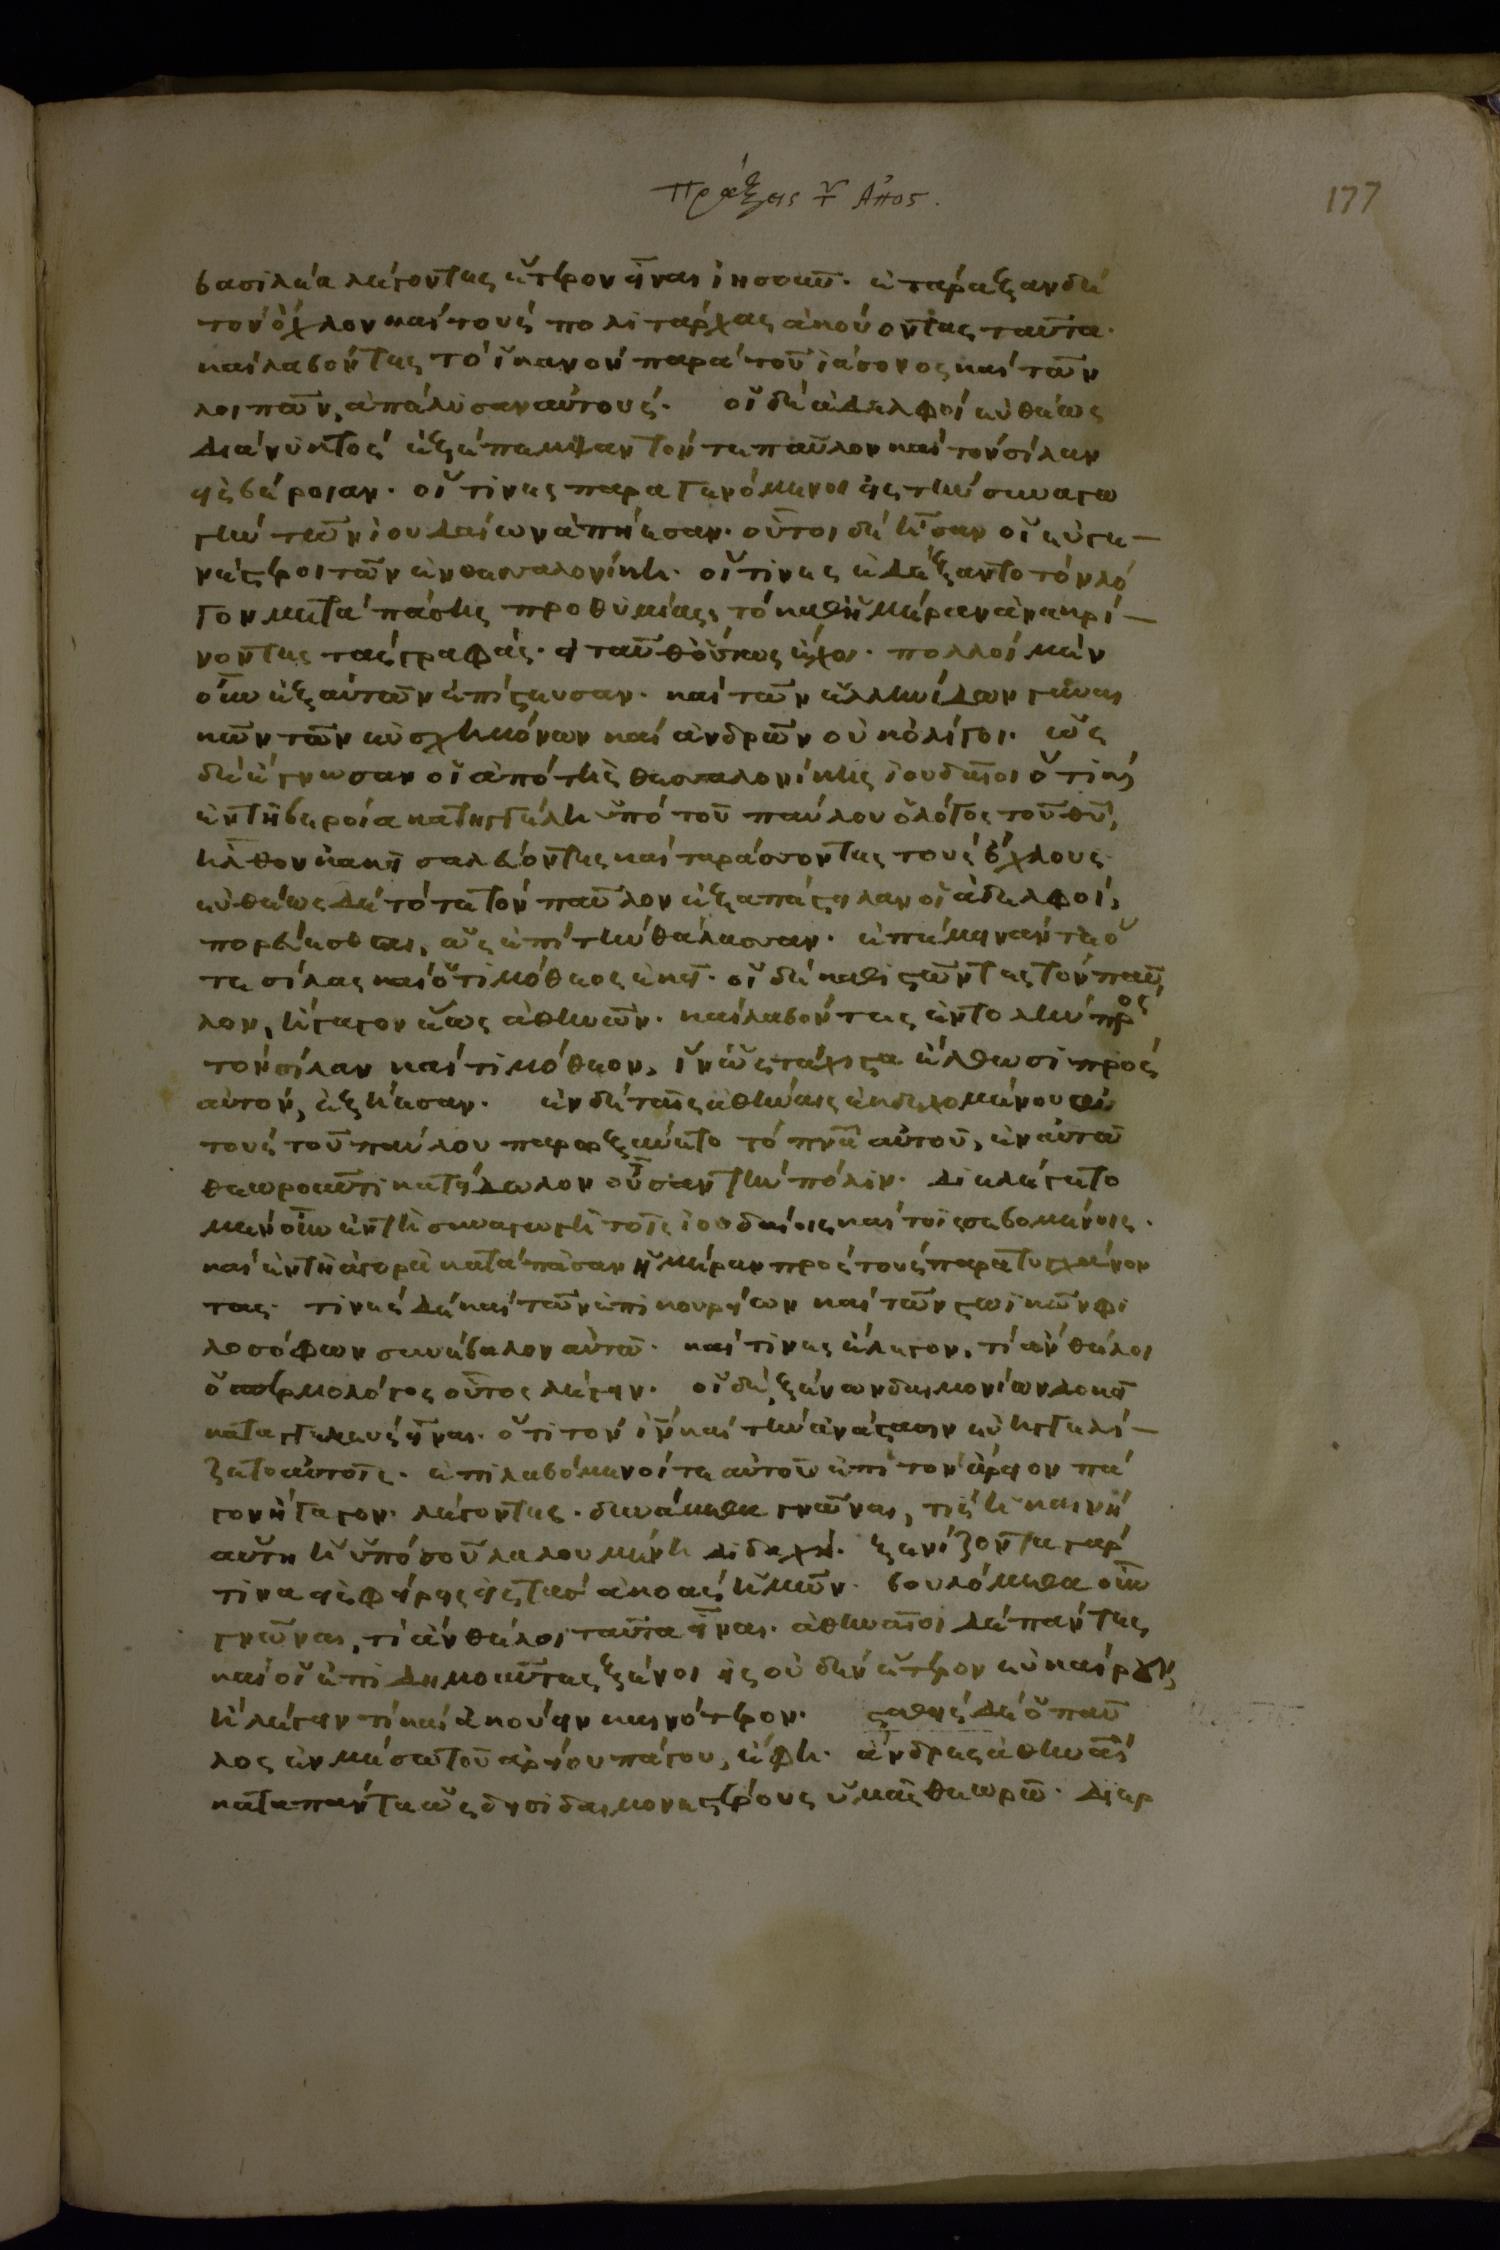 Πράξεις τ Ἀπος.
177
βασιλέα λέγοντες ἕτερον εἶναι ἰησοῦν· ἐτάραξαν δὲ
τὸν ὄχλον καὶ τοὺς πολιτάρχας ἀκούοντας ταῦτα·
καὶ λαβόντες τὸ ἱκανὸν παρὰ τοῦ ἰάσονος καὶ τῶν
λοιπῶν, ἀπέλυσαν αὐτούς. οἱ δὲ ἀδελφοὶ εὐθέως
διὰ νυκτὸς ἐξέπεμψαν τόν τε παῦλον καὶ τὸν σίλαν
εἰς βέροιαν· οἵτινες παραγενόμενοι εἰς τὴν συναγω
γὴν τῶν ἰουδαίων ἀπήεσαν· οὗτοι δὲ ἦσαν οἱ εὐγε-
νέστεροι τῶν ἐν θεσσαλονίκη· οἵτινες ἐδέξαντο τὸν λό
γον μετὰ πάσης προθυμίας, τὸ καθημέραν ἀνακρί-
νοντες τὰς γραφάς· εἰ ταῦθ οὕτως ἔχοι· πολλοὶ μὲν
οὖν ἐξ αὐτῶν ἐπίστευσαν· καὶ τῶν ἑλληνίδων γυναι
κῶν τῶν εὐσχημόνων καὶ ἀνδρῶν οὐκ ὀλίγοι· ὡς
δὲ ἔγνωσαν οἱ ἀπὸ τῆς θεσσαλονίκης ἰουδαῖοι ὅτι καὶ
ἐν τῆ βεροία κατηγγέλη ὑπὸ τοῦ παύλου ὁ λόγος τοῦ θυ,
ἦλθον κακεῖ σαλεύοντες καὶ ταράσσοντες τοὺς ὄχλους·
εὐθέως δὲ τότε τὸν παῦλον ἐξαπέστειλαν οἱ ἀδελφοί,
πορεύεσθαι, ὡς ἐπὶ τὴν θάλασσαν· ἐπέμειναν τε ὅ
τε σίλας καὶ ὁ τιμόθεος ἐκεῖ· οἱ δὲ καθιστῶντες τὸν παῦ
λον, ἤγαγον ἕως ἀθηνῶν· καὶ λαβόντες ἐντολὴν πρὸς
τὸν σίλαν καὶ τιμόθεον, ἵν' ὡς τάχιστα ἔλθωσι πρὸς
αὐτόν, ἐξήεσαν· ἐν δὲ ταῖς ἀθήναις ἐκδεχομένου αὐ
τοὺς τοῦ παύλου παρωξύνετο τὸ πνα αὐτοῦ, ἐν αὐτῶ
θεωροῦντι κατείδωλον οὖσαν τὴν πόλιν· διελέγετο
μὲν οὖν ἐν τῆ συναγωγῆ τοῖς ἰουδαίοις καὶ τοῖς σεβομένοις·
καὶ ἐν τῆ ἀγορᾶ κατὰ πᾶσαν ἡμέραν πρὸς τοὺς παρατυγχάνον
τας· τινὲς δὲ καὶ τῶν ἐπικουρείων καὶ τῶν στωϊκῶν φι
λοσόφων συνέβαλον αὐτῶ· καί τινες ἔλεγον, τί ἂν θέλοι
ὁ σπερμολόγος οὗτος λέγειν· οἱ δὲ, ξένων δαιμονίων δοκεῖ
καταγγελεὺς εἶναι· ὅτι τὸν ιν καὶ τὴν ἀνάστασιν εὐηγγελί-
ζετο αὐτοῖς· ἐπιλαβόμενοί τε αὐτοῦ ἐπὶ τὸν ἄρειον πά
γον ἤγαγον· λέγοντες· δυνάμεθα γνῶναι, τίς ἡ καινὴ
αὕτη ἡ ὑπὸ σοῦ λαλουμένη διδαχή· ξενίζοντα γάρ
τινα εἰσφέρεις εἰς τὰς ἀκοὰς ἡμῶν· βουλόμεθα οὖν
γνῶναι, τί ἂν θέλοι ταῦτα εἶναι· ἀθηναῖοι δὲ πάντες
καὶ οἱ ἐπιδημοῦντες ξένοι εἰς οὐδὲν ἕτερον εὐκαίρουν
ἢ λέγειν τί καὶ ἀκούειν καινότερον· σταθεὶς δὲ ὁ παῦ
λος ἐν μέσω τοῦ ἀρείου πάγου, ἔφη· ἄνδρες ἀθηναῖοι
κατὰ πάντα ὡς δεισιδαιμονεστέρους ὑμᾶς θεωρῶ· διερ